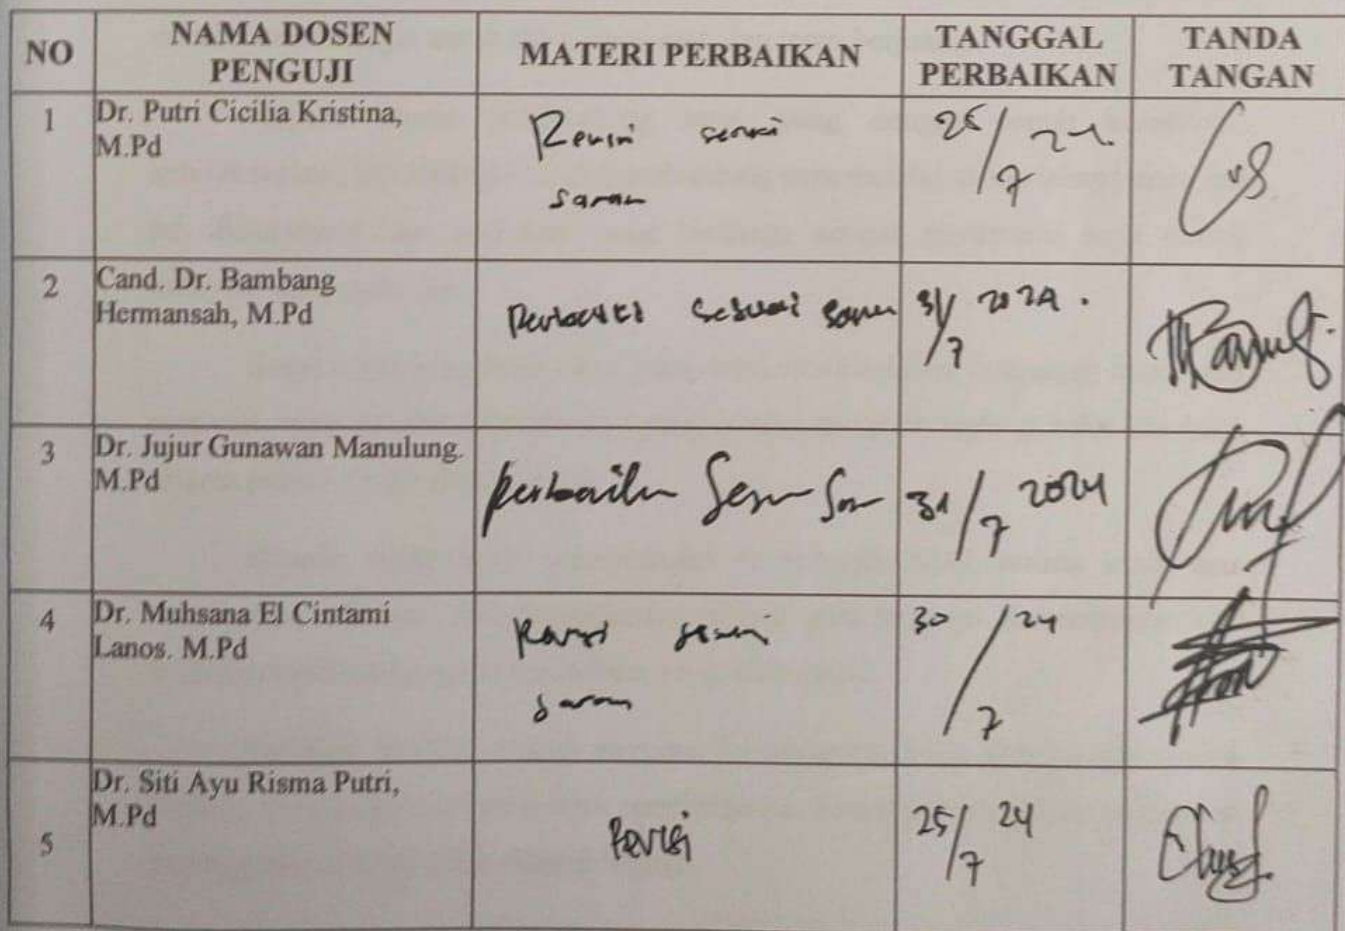 NO
NAMA DOSEN
PENGUJI
MATERI PERBAIKAN
TANGGAL
PERBAIKAN
TANDA
TANGAN
1
Dr. Putri Cicilia Kristina,
M.Pd
Revisi sesuai
saran
25/7 24.
2
Cand. Dr. Bambang
Hermansah, M.Pd
Perbaiki sesuai saran
31/7 2024.
3
Dr. Jujur Gunawan Manulung.
M.Pd
31/7 2024
4
Dr. Muhsana El Cintami
Lanos. M.Pd
Revisi sesuai
saran
30/7 24
5
Dr. Siti Ayu Risma Putri,
M.Pd
Revisi
25/7 24